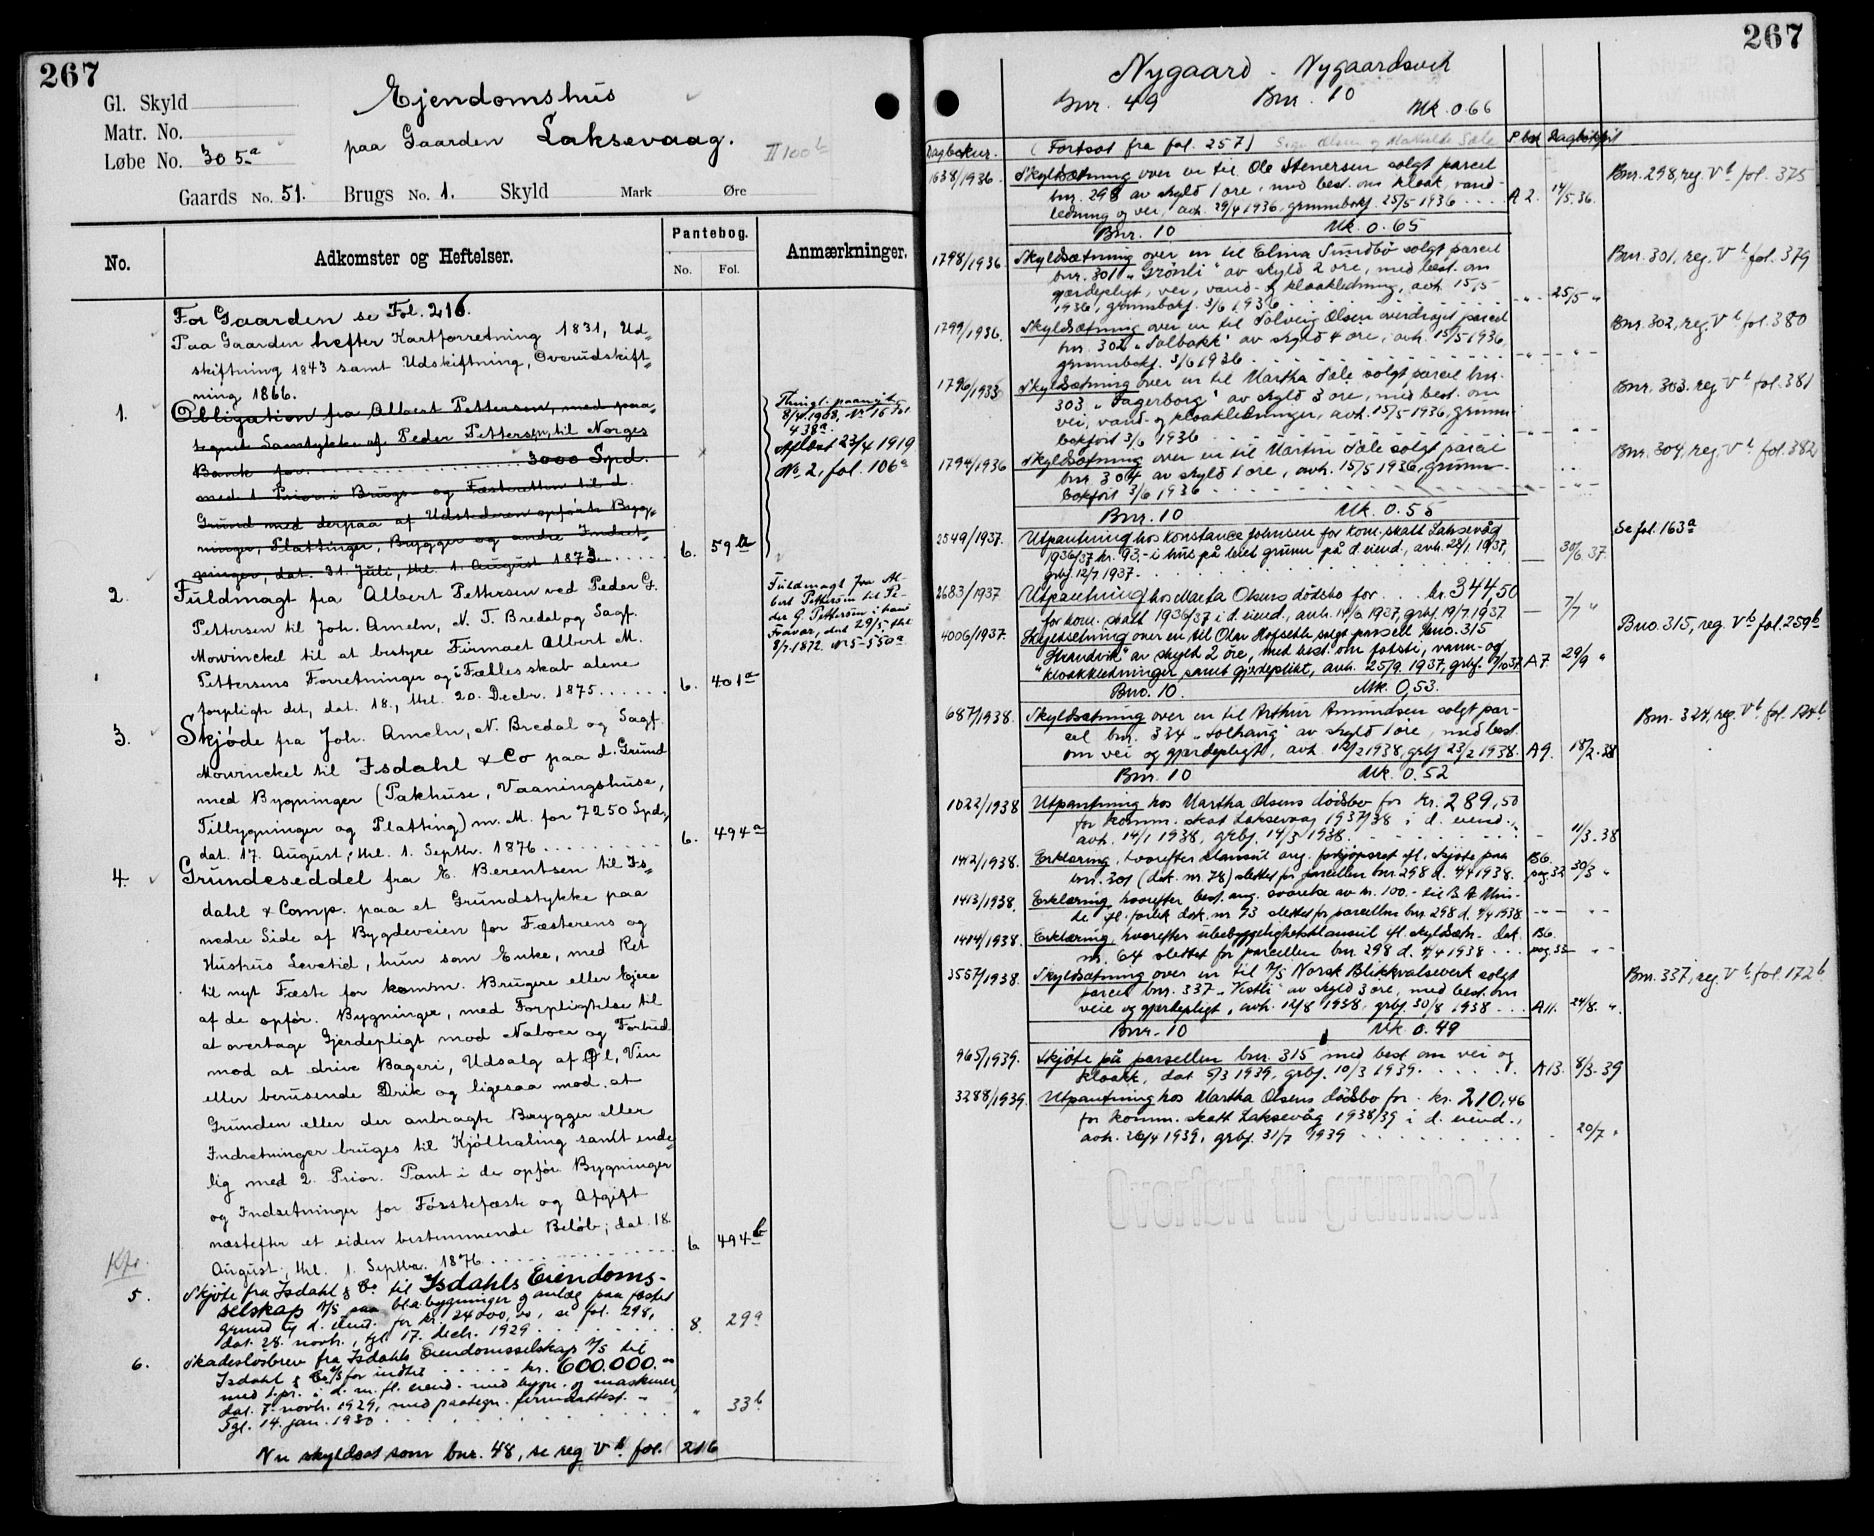 267
Gl. Skyld
Matr. No.
Løbe No. 305a
Ejendomshus
paa Gaarden Laksevaag.
II 100b
Gaards No. 51. Brugs No. 1. Skyld Mark Øre
No. Adkomster og Heftelser. Pantebog. No. Fol. Anmærkninger.
For Gaarden se Fol. 216.
Paa Gaarden hefter Kartforretning 1831, Ud-
skiftning 1843 samt Udskiftning, Overudskift-
ning 1866.
1. Obligation fra Albert Pettersen, med paa-
tegnet Samtykke af Peder Pettersen, til Norges
Bank for 3000 Spd.
med 1 Prior. i Brugs- og Fæsteretten til d.
Grund med derpaa af Udstederen opførte Byg-
ninger, Plattinger, Brygger og andre Indret-
ninger, dat. 31. Juli, thl. 1. August 1873. 6. 59a
8/4 1903, No 16 fol
438a.
Aflæst 23/4 1919
No 2, fol. 106a
2. Fuldmagt fra Albert Pettersen ved Peder G.
Pettersen til Joh. Ameln, N. T. Bredal og Sagf.
Mowinckel til at bestyre Firmaet Albert M.
Pettersens Forretninger og i Fællesskab alene
forpligte det, dat. 18., thl. 20. Decbr. 1875 6. 401a
Fuldmagt fra Al-
bert Pettersen til Pe-
der G. Pettersen i hans
Fravær, dat 29/5 thl
8/7 1872. No 5-550a
3. Skjøde fra Joh. Ameln, N. Bredal og Sagf.
Mowinckel til Isdahl & Co paa d. Grund
med Bygninger (Pakhuse, Vaaningshuse,
Tilbygninger og Platting) m. M. for 7250 Spd.,
dat. 17. August, thl. 1. Septbr. 1876 6. 494a
4. Grundeseddel fra E. Berentsen til Is-
dahl & Comp. paa et Grundstykke paa
nedre Side af Bygdeveien for Fæsterens og
Hustrus Levetid, hun som Enke, med Ret
til nyt Fæste for komm. Brugere eller Ejere
af de opfør. Bygninger, med Forpligtelse til
at overtage Gjerdepligt mod Naboer og Forbud
mod at drive Bageri, Udsalg af Øl, Vin
eller berusende Drik og ligesaa mod at
Grunden eller der anbragte Brygger eller
Indretninger bruges til Kjølhaling samt ende-
lig med 2. Prior. Pant i de opfør. Bygninger
og Indretninger for Førstefæste og Afgift
næstefter et siden bestemmende Beløb; dat. 18.
August, thl. 1. Septbr. 1876 6 494b
Kfr.
5. Skjøte fra Isdahl & Co til Isdahls Eiendoms-
selskap A/S paa bl.a. bygninger og anlæg paa fæstet
grund til d. eiend. for kr. 24000,00, se fol. 298,
dat. 28. novbr., tgl. 17. decbr. 1929 8. 29a
6. Skadesløsbrev fra Isdahls Eiendomsselskap A/S til
Isdahl & Co A/S for indtil kr. 600.000.00
med 1. pr. i d. m. fl. eiend. med bygn. og maskiner,
dat. 7. novbr. 1929, med paategn. firmaattest.
Tgl. 14. jan. 1930 " 33b
Nu skyldsat som bnr. 48, se reg Vb. fol. 216
267
Nygaard - Nygaardsvik
Gnr. 49 Bnr. 10 Mk. 0.66
Dagboknr. (Fortsat fra fol. 257) P.bok Dagbokført
1638/1936. Skyldsætning over en til Ole Stenersen solgt parcel
bnr. 298 av skyld 1 øre, med best. om kloak, vand-
ledning og vei, avh. 29/4 1936, grunnbokf. 25/5 1936 A 2. 14/5.36.
Bnr. 298, reg. Vb fol. 375
Bnr. 10 Mk. 0.65
1798/1936 Skyldsætning over en til Elina Sundbø solgt parcel
bnr. 301 "Grønli" av skyld 2 øre, med best. om
gjærdepligt, vei, vand- og kloakledning, avh. 15/5
1936, grunnbokf. 3/6 1936 - " - 25/5 "
Bnr. 301, reg. Vb fol. 379
1799/1936. Skyldsætning over en til Solveig Olsen overdraget parcel
bnr. 302 "Solbakk" av skyld 4 øre, avh. 15/5 1936,
grunnbokf. 3/6 1936 - " - - " -
Bnr. 302, reg. Vb fol. 380
1796/1935 Skyldsætning over en til Martha Sæle solgt parcel bnr.
303 "Fagerborg" av skyld 3 øre, med best. om
vei, vand- og kloakledninger, avh. 15/5 1936, grunn-
bokført 3/6 1936 - " - - " -
Bnr. 303. reg Vb fol. 381
1794/1936 Skyldsætning over en til Martin Sæle solgt parcel
bnr. 304 av skyld 1 øre, avh. 15/5 1936, grunn-
bokført 3/6 1936 - " - - " -
Bnr. 304, reg. Vb fol. 382
Bnr. 10 Mk. 0.55
2549/1937. Utpantning hos Konstance Johnsen for kom. skatt Laksevåg
1936/37 kr. 93.- i hus på leiet grunn på d. eiend., avh. 28/1 1937,
grbj. 12/7 1937. — 30/6 37
Se fol. 163a
2683/1937 Utpantning hos Marta Olsens dødsbo for kr. 344,50
for kom. skatt 1936/37 i d. eiend., avh. 14/6 1937, grbj. 19/7 1937 — 7/7 "
4006/1937. Skyldsetning over en til Olav Hofseth solgt parsell bno. 315
"Strandvik" av skyld 2 øre, med best. om fotsti, vann- og
kloakkledninger, samt gjerdeplikt, avh. 25/9 1937, grbj. 9/10 37. A 7. 29/9 "
Bno. 315, reg. Vb fol. 259b
Bno. 10. Mk. 0,53.
687/1938. Skyldsetning over en til Arthur Amundsen solgt par-
cel bnr. 334 "Solhaug" av skyld 1 øre, med best.
om vei og gjærdepligt, avh. 12/2 1938, grbj 23/2 1938. A 9. 18/2.38
Bnr. 10 Mk. 0.52
1022/1938 Utpantning hos Martha Olsens dødsbo for kr. 289,50
for komm. skat Laksevaag 1937/38 i d. eiend.,
avh. 14/1 1938, grbj. 14/3 1938. - 11/3.38
1412/1938. Erklæring, hvorefter klausul ang. forkjøpsret ifl. skjøte paa
bnr. 301 (dok. nr. 78) slettes for parcellen bnr. 298 d. 4/4 1938. B 6. pag. 32 30/3 "
1413/1938. Erklæring hvorefter best. ang. svarelse av kr. 100.- til
slettet for parcellen bnr. 298 d. 4/4 1938
1414/1938. Erklæring, hvorefter ubebyggelighetsklausul ifl. skyldsætn. dok.
nr. 64 slettet for parcellen bnr 298 d. 4/4 1938 B 6. pag. 33 - " -
3557/1938. Skyldsætning over en til A/S Norsk Blikkvalseverk solgt
parcel bnr. 337 "Vestli" av skyld 3 øre, med best. om
veie og gjærdepligt, avh. 12/8 1938. grbj. 30/8 1938 A 11. 24/8. "
Bnr. 337, reg. Vb fol 172b
Bnr. 10 Mk 0.49
965/1939. Skjøte på parsellen bnr. 315 med best om vei og
kloakk, dat 5/3 1939, grbj. 10/3 1939. A 13. 8/3.39
3288/1939. Utpantning hos Martha Olsens dødsbo for kr. 210,46
for komm. skatt Laksevåg 1938/39 i d. eiend.,
avh. 26/4 1939, grbj. 31/7 1939 - 20/7 "
Overført til grunnbok